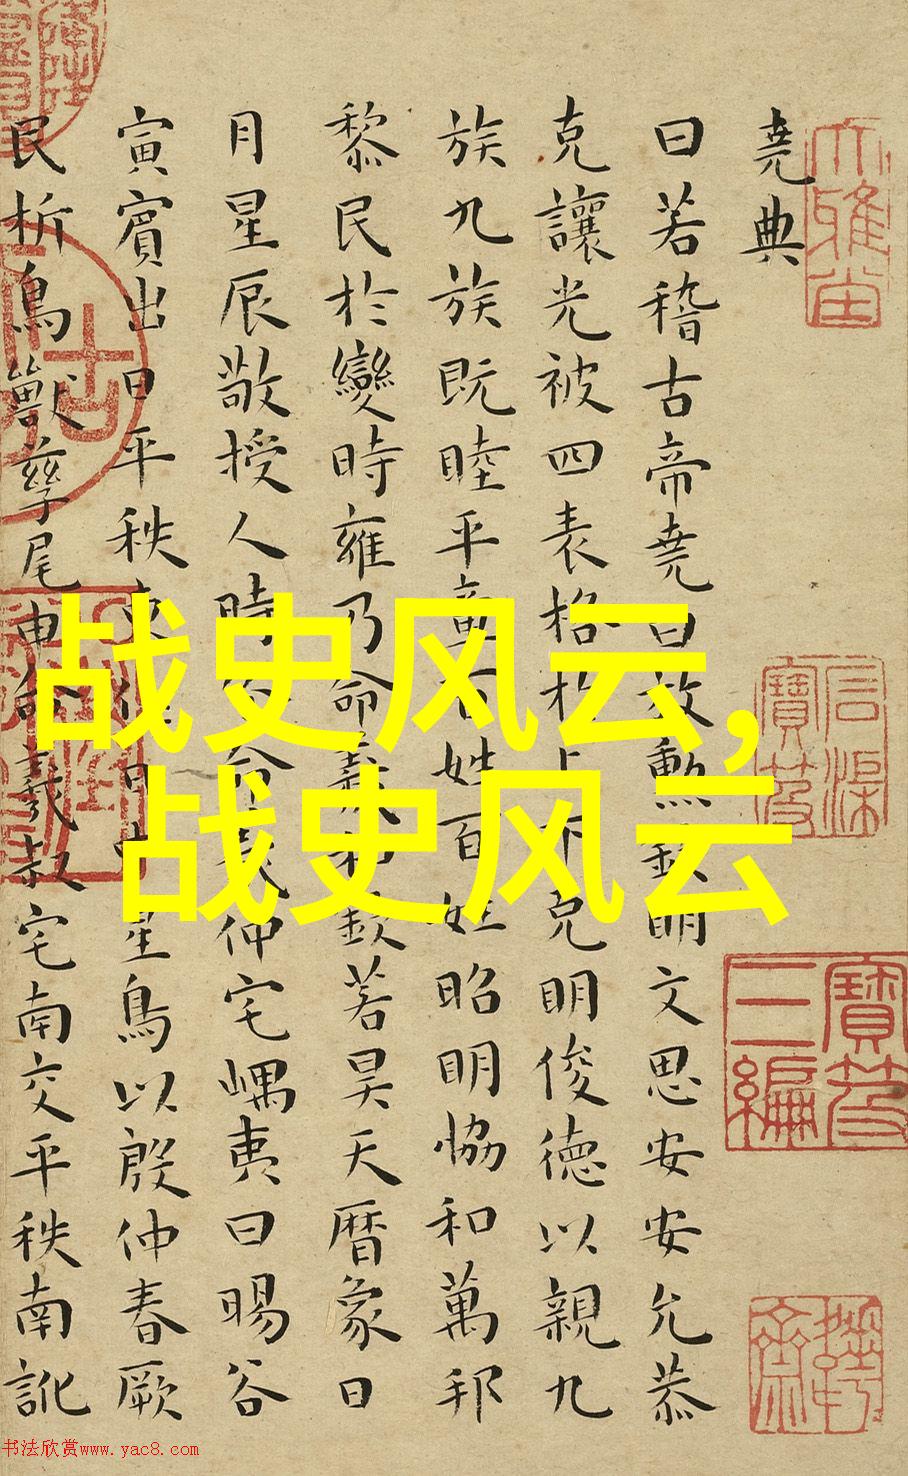 堯典
曰若稽古帝堯曰放勳欽明文思安安允恭
克讓光被四表格於上下克明俊德以親九
族九族既睦平章百姓百姓昭明恊和萬邦
黎民於變時雍乃命羲和欽若昊天曆象日
月星辰敬授人時分命羲仲宅嵎夷曰暘谷
寅賓出日平秩東作日中星鳥以殷仲春厥
民析鳥獸孳尾申命羲叔宅南交平秩南訛
战史风云,
战史风云
石渠寶笈
寶笈三編
书法欣赏www.yac8.com